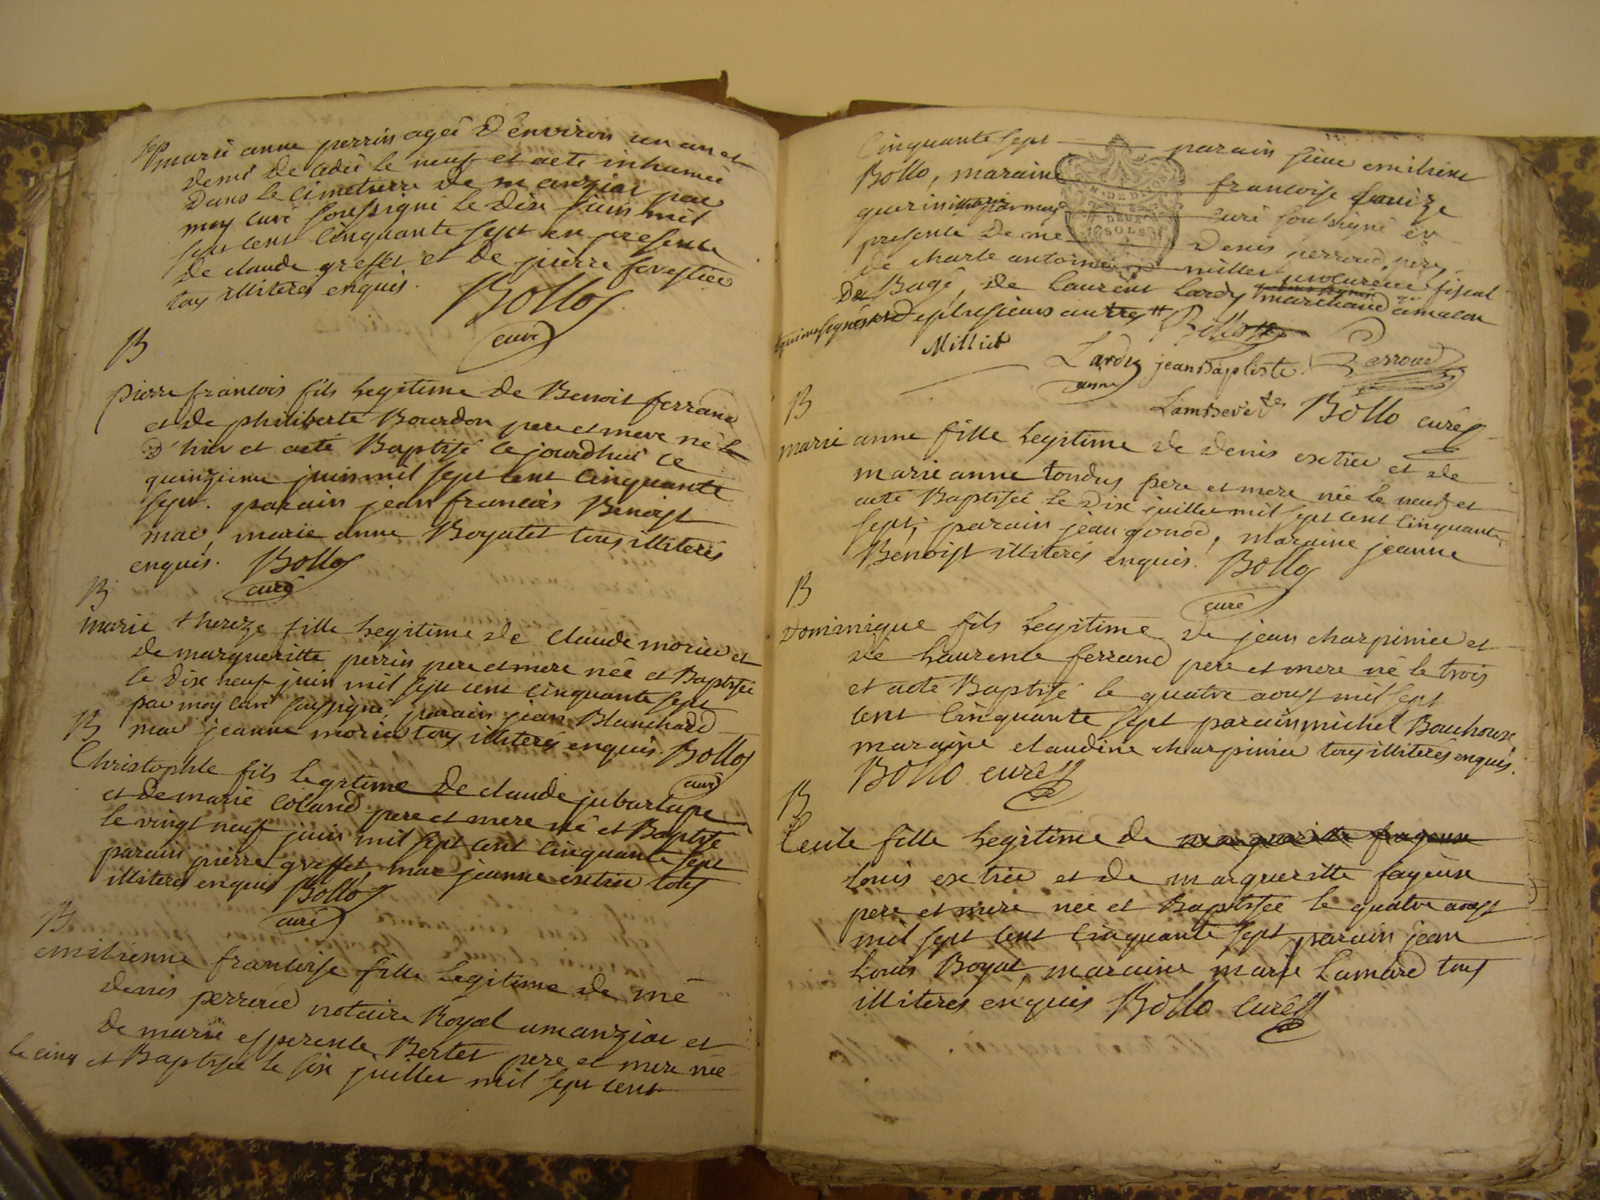 marie anne perrin ageé D'environ un an et
demi décédéé le neuf et aeté inhumeé
Dans le Cimetierre de manziat par
moy curé soussigné le Dix juin mil
sept cent Cinquante sept en presence
de claude greffet et de pierre
tous illiterés enquis. Bollo
curé
B
pierre françois fils Legitime de Benoit ferrand
et de philiberte Bourdon pere et mere né le
D'hier et aeté Baptisé ce jourdhui ce
quinzieme juin mil sept cent Cinquante
sept. parain jean francois Benoist
mar, marie anne Boyatet tous illiterés
enquis. Bollo
curé
B
marie thereze fille Legitime de claude morier et
de margueritte perrin pere et mere neé et Baptisée
le dix neuf juin mil sept cent cinquante sept
par moy curé soussigné, parain jean Blanchard
B
mar jeanne morier tous illiterés enquis. Bollo
curé
Christophle fils Legitime de claude jubartape
et de marie Coland pere et mere né et Baptisé
le vingt neuf juin mil sept cent Cinquante sept
parain pierre greffet, mar jeanne extrier tous
illiterés enquis Bollo
curé
B
emilienne francoise fille Legitime de mê
denis perroud notaire Royal amanziat et
de marie esperence Bertet pere et mere neé
le cinq et Baptisée le six juillet mil sept cent
Cinquante sept parain sieur emiliene
Bollo, maraine francoise
guerin curé soussigné en
presence De me Denis perroud, pere,
de charle antoine millet procureur fiscal
De Bagé, de Laurent Lardy marchand amacon
de plusieurs autres Bollo
Millet Lardy jean Baptiste Perroud
Lambert Bollo curé
B
marie anne fille Legitime de Denis extrier et de
marie anne tondus pere et mere née le neuf et
aeté Baptisée le Dix juillet mil sept cent Cinquante
sept; parain jean gonod, maraine jeanne
Benoist illiterés enquis. Bollo
curé
B
Dominique fils Legitime de jean charpinier et
de Laurence ferrand pere et mere né le trois
et aeté Baptisé le quatre aoust mil sept
cent Cinquante sept parain michel Bouchoux
maraine claudine charpinier tous illiterés enquis.
Bollo curé
B
Cecile fille Legitime de
Louis extrier et de margueritte fayeux
pere et mere neé et Baptisée le quatre aoust
mil sept cent Cinquante sept, parain jean
Louis Boyat, maraine marie Lamard tous
illiterés enquis Bollo curé